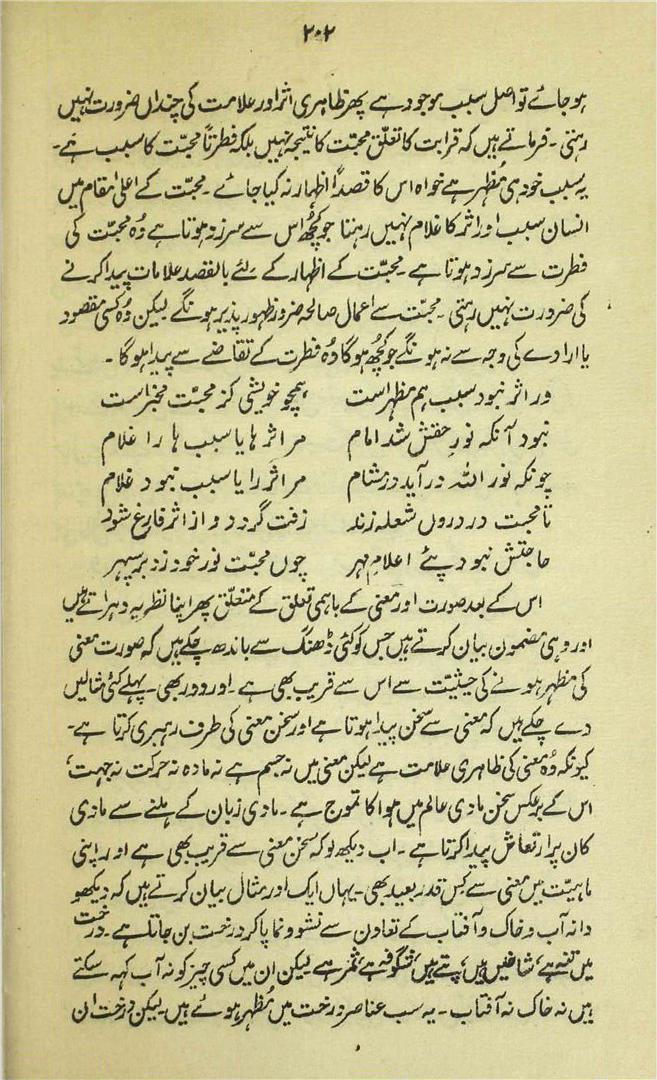 ۲۰۲
ہو جائے تو اصل سبب موجود ہے پھر ظاہری اثر اور علامت کی چنداں ضرورت نہیں
رہتی ۔ فرماتے ہیں کہ قرابت کا تعلق محبّت کا نتیجہ نہیں بلکہ فطرتاً محبّت کا سبب ہے ۔
یہ سبب خود ہی مُظہر ہے خواہ اس کا قصداً اظہار نہ کیا جائے ۔ محبّت کے اعلیٰ مقام میں
انسان سبب اور اثر کا غلام نہیں رہتا جو کچُھ اس سے سرزد ہوتا ہے وُہ محبّت کی
فطرت سے سرزد ہوتا ہے ۔ محبّت کے اظہار کے لئے بالقصد علامات پیدا کرنے
کی ضرورت نہیں رہتی ۔ محبّت سے اعمال صالحہ ضرور ظہور پذیر ہونگے لیکن وُہ کسی مقصود
یا ارادے کی وجہ سے نہ ہونگے جو کچُھ ہوگا وُہ فطرت کے تقاضے سے پیدا ہوگا ۔
ور اثر نبود سبب ہم مظہر است ہمچو خویشی کز محبّت مخبر است
نبود آنکہ نورِ حقش شد امام مر اثر ہا یا سبب ہا را غلام
چونکہ نور اللہ در آید در مشام مر اثر را یا سبب نبود غلام
تا محبت در دروں شعلہ زند زفت گردد و از اثر فارغ شود
حاجتش نبود پئے اعلامِ مہر چوں محبّت نور خود زد بر سپہر
اس کے بعد صورت اور معنی کے باہمی تعلق کے متعلّق پھر اپنا نظریہ دہراتے ہیں
اور وہی مضمون بیان کرتے ہیں جس کو کئی ڈھنگ سے باندھ چکے ہیں کہ صورت معنی
کی مظہر ہونے کی حیثیّت سے اس سے قریب بھی ہے ۔ اور دور بھی ۔ پہلے کئی مثالیں
دے چکے ہیں کہ معنی سے سخن پیدا ہوتا ہے اور سخن معنی کی طرف رہبری کرتا ہے ۔
کیونکہ وُہ معنی کی ظاہری علامت ہے لیکن معنی میں نہ جسم ہے نہ مادہ نہ حرکت نہ جہت ،
اس کے برعکس سخن مادی عالم میں ہوا کا تموج ہے ۔ مادی زبان کے ہلنے سے مادی
کان پر ارتعاش پیدا کرتا ہے ۔ اب دیکھ لو کہ سخن معنی سے قریب بھی ہے اور اپنی
ماہیّت میں معنی سے کس قدر بعید بھی ۔ یہاں ایک اور مثال بیان کرتے ہیں کہ دیکھو
دانہ آب و خاک و آفتاب کے تعاون سے نشوونما پا کر درخت بن جاتا ہے ۔ درخت
میں تنہ ہے ، شاخیں ہیں ، پتے ہیں ، شگوفہ ہے ثمر ہے لیکن ان میں کسی چیز کو نہ آب کہہ سکتے
ہیں نہ خاک نہ آفتاب ۔ یہ سب عناصر درخت میں مُظہر ہوئے ہیں لیکن درخت ان